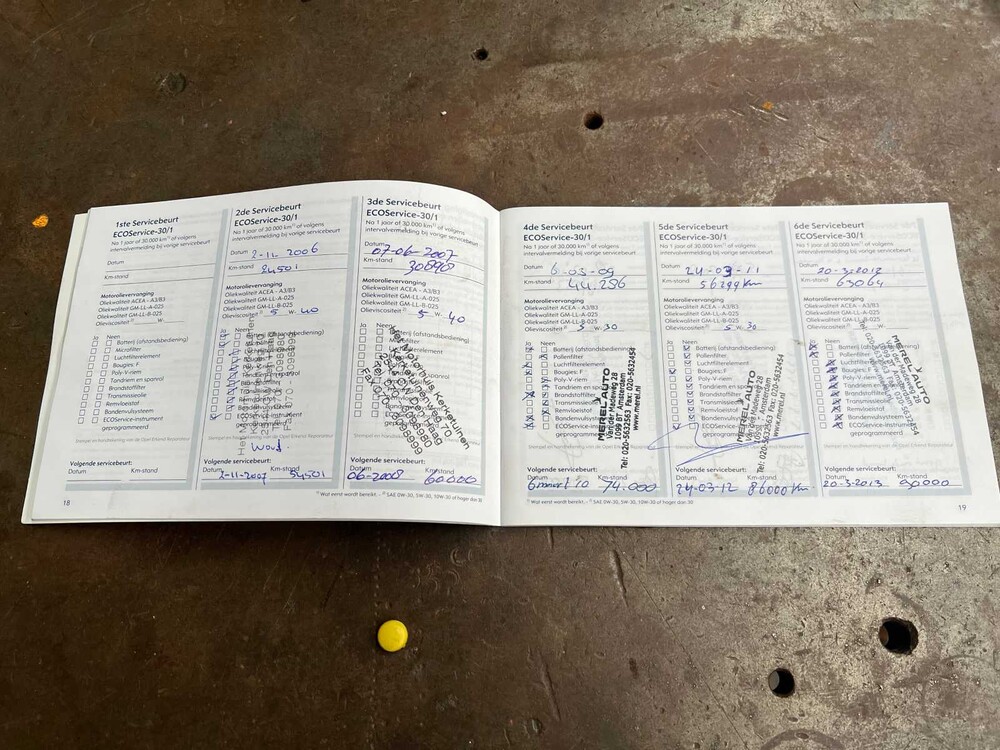 1ste Servicebeurt
ECOService-30/1
Na 1 jaar of 30.000 km¹⁾ of volgens
intervalvermelding bij vorige servicebeurt
Datum
Km-stand
Motorolievervanging
Oliekwaliteit ACEA - A3/B3
Oliekwaliteit GM-LL-A-025
Oliekwaliteit GM-LL-B-025
Olieviscositeit ²⁾ W-
Ja Neen
Batterij (afstandsbediening)
Microfilter
Luchtfilterelement
Bougies: F
Poly-V-riem
Tandriem en spanrol
Brandstoffilter
Transmissieolie
Remvloeistof
Bandenvulsysteem
ECOService-instrument
geprogrammeerd
Volgende servicebeurt:
Datum Km-stand
18
2de Servicebeurt
ECOService-30/1
Na 1 jaar of 30.000 km¹⁾ of volgens
intervalvermelding bij vorige servicebeurt
Datum 2-11 2006
Km-stand 24501
Motorolievervanging
Oliekwaliteit ACEA - A3/B3
Oliekwaliteit GM-LL-A-025
Oliekwaliteit GM-LL-B-025
Olieviscositeit ²⁾ 5 W- 40
Ja Neen
Batterij (afstandsbediening)
Bougies: F
Poly-V-riem
Tandriem en spanrol
Brandstoffilter
Transmissieolie
Remvloeistof
Bandenvulsysteem
ECOService-instrument
geprogrammeerd
Volgende servicebeurt:
Datum Km-stand
2-11-2007 54501
3de Servicebeurt
ECOService-30/1
Na 1 jaar of 30.000 km¹⁾ of volgens
intervalvermelding bij vorige servicebeurt
Datum 07-06-2007
Km-stand 30898
Motorolievervanging
Oliekwaliteit ACEA - A3/B3
Oliekwaliteit GM-LL-A-025
Oliekwaliteit GM-LL-B-025
Olieviscositeit ²⁾ 5 W- 40
Ja Neen
Kerketuinen
Den Haag
Volgende servicebeurt:
Datum Km-stand
06-2008 60000
¹⁾ Wat eerst wordt bereikt. - ²⁾ SAE 0W-30, 5W-30, 10W-30 of hoger dan 30
4de Servicebeurt
ECOService-30/1
Na 1 jaar of 30.000 km¹⁾ of volgens
intervalvermelding bij vorige servicebeurt
Datum 6-03-09
Km-stand 44.286
Motorolievervanging
Oliekwaliteit ACEA - A3/B3
Oliekwaliteit GM-LL-A-025
Oliekwaliteit GM-LL-B-025
Olieviscositeit ²⁾ 5 W- 30
Ja Neen
Batterij (afstandsbediening)
Pollenfilter
Luchtfilterelement
Bougies: F
Poly-V-riem
Tandriem en spanrol
Brandstoffilter
Transmissieolie
Remvloeistof
Bandenvulsysteem
ECOService-instrument
geprogrammeerd
MEREL AUTO
Van der Madeweg 28
1099 BT Amsterdam
Tel: 020-5632563 Fax: 020-5632454
www.merel.nl
Volgende servicebeurt:
Datum Km-stand
6 maart 10 74.000
5de Servicebeurt
ECOService-30/1
Na 1 jaar of 30.000 km¹⁾ of volgens
intervalvermelding bij vorige servicebeurt
Datum 24-03-11
Km-stand 56299 km
Motorolievervanging
Oliekwaliteit ACEA - A3/B3
Oliekwaliteit GM-LL-A-025
Oliekwaliteit GM-LL-B-025
Olieviscositeit ²⁾ 5 W- 30
Ja Neen
Batterij (afstandsbediening)
Pollenfilter
Luchtfilterelement
Bougies: F
Poly-V-riem
Tandriem en spanrol
Brandstoffilter
Transmissieolie
Remvloeistof
Bandenvulsysteem
ECOService-instrument
geprogrammeerd
MEREL AUTO
Van der Madeweg 28
Amsterdam
Tel: 020-5632563 Fax: 020-5632454
www.merel.nl
Volgende servicebeurt:
Datum Km-stand
24-03-12 86000 km
6de Servicebeurt
ECOService-30/1
Na 1 jaar of 30.000 km¹⁾ of volgens
intervalvermelding bij vorige servicebeurt
Datum 20-3-2012
Km-stand 63064
Motorolievervanging
Oliekwaliteit ACEA - A3/B3
Oliekwaliteit GM-LL-A-025
Oliekwaliteit GM-LL-B-025
Olieviscositeit ²⁾
Ja Neen
Batterij (afstandsbediening)
Pollenfilter
Luchtfilterelement
Bougies: F
Poly-V-riem
Tandriem en spanrol
Brandstoffilter
Transmissieolie
Remvloeistof
Bandenvulsysteem
ECOService-instrument
geprogrammeerd
MEREL AUTO
Volgende servicebeurt:
Datum Km-stand
20-3-2013 90000
¹⁾ Wat eerst wordt bereikt. - ²⁾ SAE 0W-30, 5W-30, 10W-30 of hoger dan 30
19